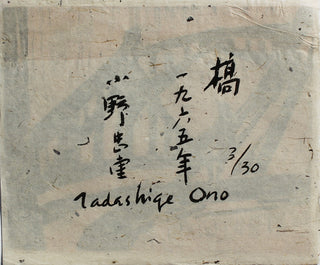 橋
一九六五年
小野忠重
3/30
Tadashige Ono